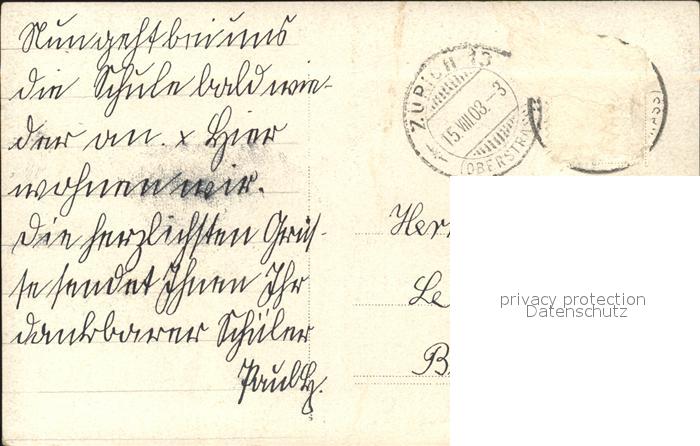 Nun geht bei uns
die Schule bald wie-
der an. x Hier
wohnen wir.
Die herzlichsten Grüs-
se sendet Ihnen Ihr
dankbarer Schüler
Paul H.
ZÜRICH 13
15.VIII.08.-3
(OBERSTRASS)
Her
Le
B
privacy protection
Datenschutz